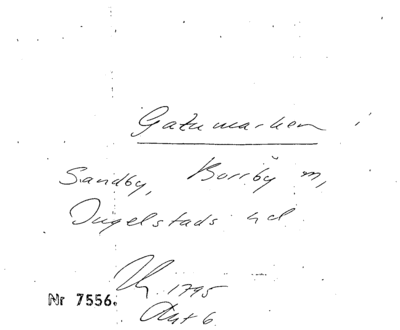 Gatumarken i
Sandby, Borrby m,
Ingelstads hd
1795
Nr 7556.
Akt 6